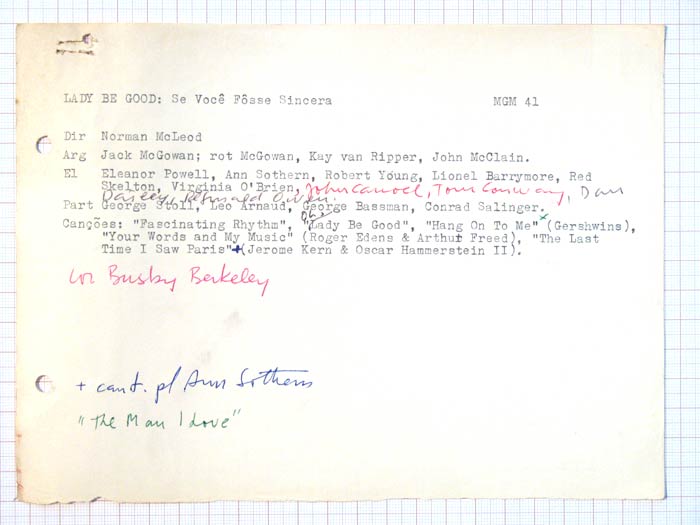 LADY BE GOOD: Se Você Fôsse Sincera MGM 41
Dir Norman McLeod
Arg Jack McGowan; rot McGowan, Kay van Ripper, John McClain.
El Eleanor Powell, Ann Sothern, Robert Young, Lionel Barrymore, Red
Skelton, Virginia O'Brien, John Carroll, Tom Conway, Dan
Dailey, Reginald Owen.
Part George Stoll, Leo Arnaud, George Bassman, Conrad Salinger.
Oh,
Canções: "Fascinating Rhythm", "Lady Be Good", "Hang On To Me" (Gershwins),
"Your Words and My Music" (Roger Edens & Arthur Freed), "The Last
Time I Saw Paris"+(Jerome Kern & Oscar Hammerstein II).
cor Busby Berkeley
+ cant. p/ Ann Sothern
"The Man I Love"